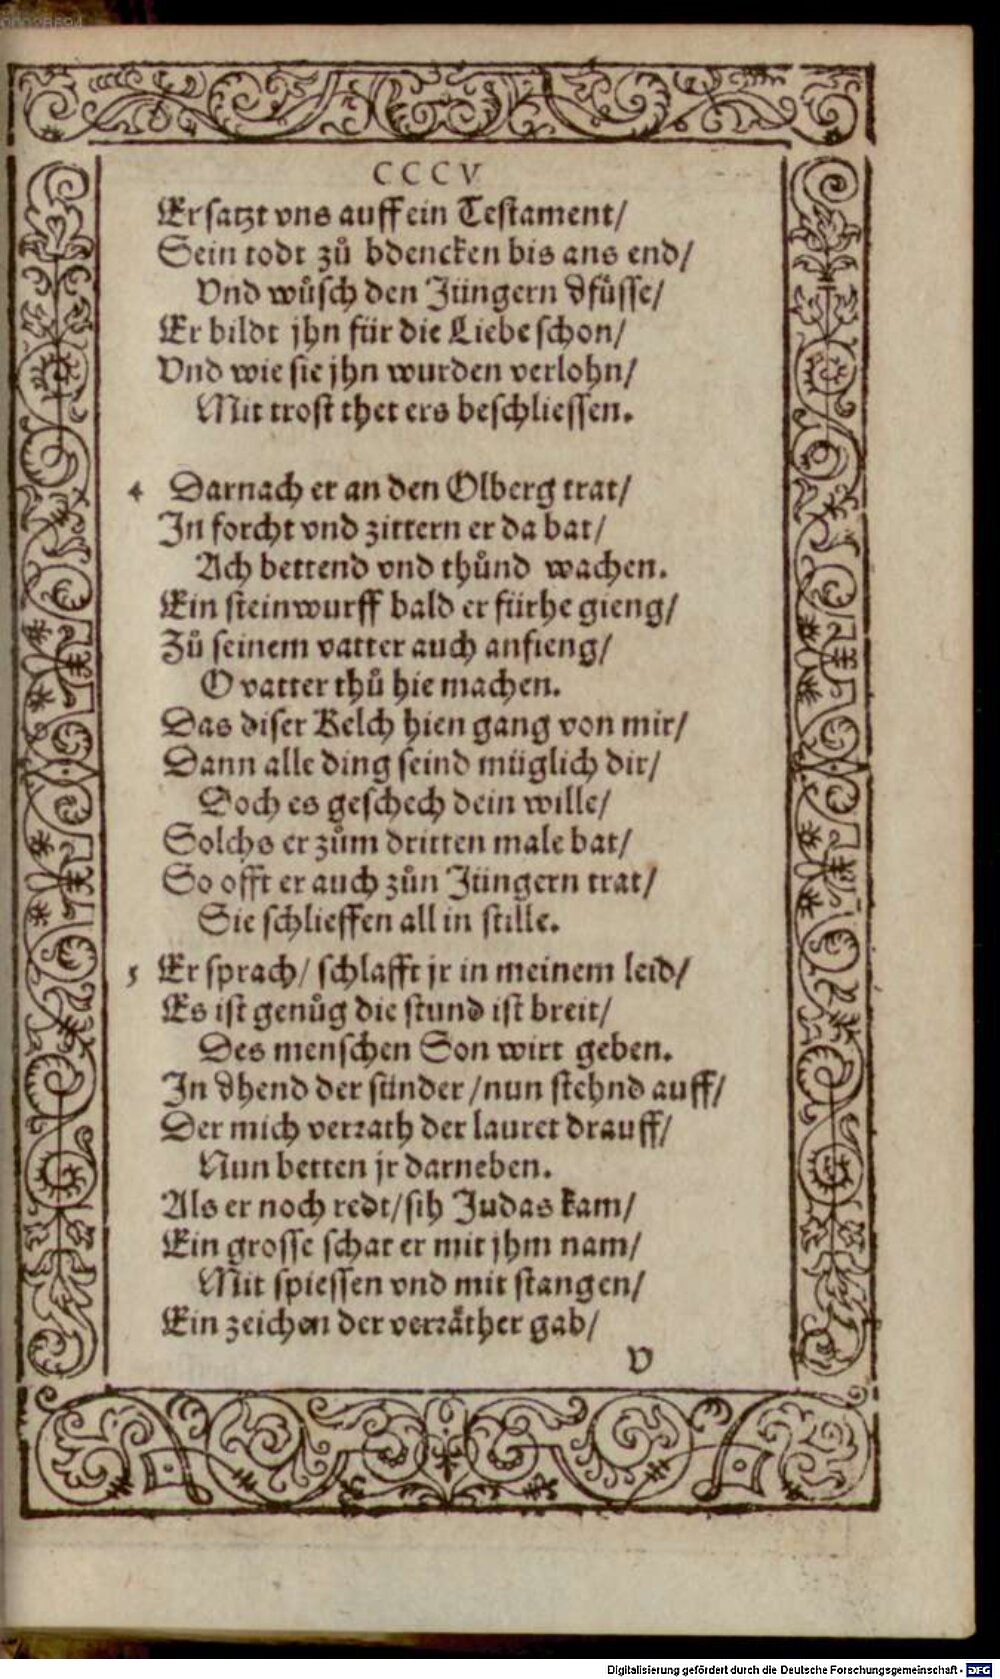 00028694
CCCV
Er satzt vns auff ein Testament/
Sein todt zů bdencken bis ans end/
Vnd wůsch den Jüngern dfüsse/
Er bildt jhn für die Liebe schon/
Vnd wie sie jhn wurden verlohn/
Mit trost thet ers beschliessen.
4 Darnach er an den Olberg trat/
In forcht vnd zittern er da bat/
Ach bettend vnd thůnd wachen.
Ein steinwurff bald er fürhe gieng/
Zů seinem vatter auch anfieng/
O vatter thů hie machen.
Das diser Kelch hien gang von mir/
Dann alle ding seind müglich dir/
Doch es geschech dein wille/
Solchs er zům dritten male bat/
So offt er auch zůn Jüngern trat/
Sie schlieffen all in stille.
5 Er sprach/ schlafft jr in meinem leid/
Es ist genůg die stund ist breit/
Des menschen Son wirt geben.
In dhend der sünder/nun stehnd auff/
Der mich verrath der lauret drauff/
Nun betten jr darneben.
Als er noch redt/sih Judas kam/
Ein grosse schar er mit jhm nam/
Mit spiessen vnd mit stangen/
Ein zeichen der verräther gab/
V
Digitalisierung gefördert durch die Deutsche Forschungsgemeinschaft - DFG